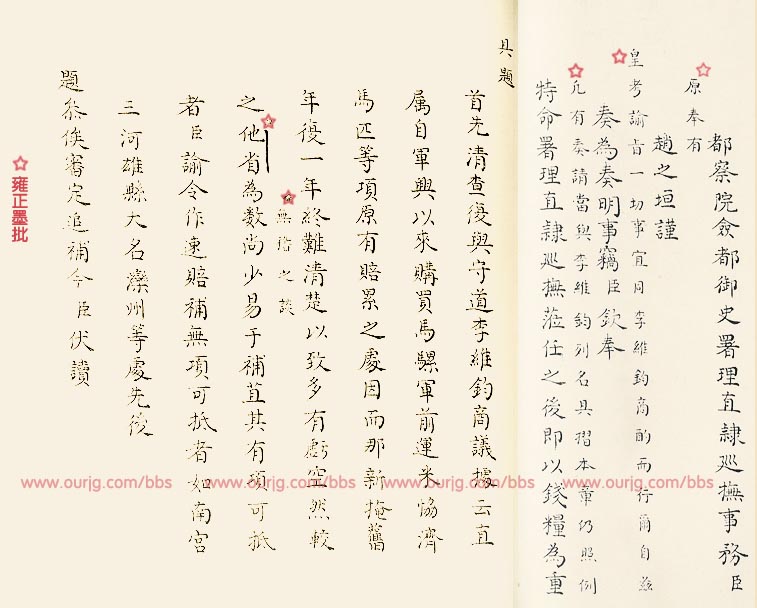 都察院僉都御史署理直隷廵撫事務臣
原奉有
趙之垣謹
皇考諭旨一切事宜同李維鈞商酌而行爾自茲
奏為奏明事竊臣欽奉
凢有奏請當與李維鈞列名具摺本章仍照例
特命署理直隷廵撫蒞任之後即以錢糧為重
具題
首先清查復與守道李維鈞商議據云直
属自軍興以來購買馬騾軍前運米恊濟
馬匹等項原有賠累之處因而那新掩舊
年復一年終難清楚以致多有虧空然較
無稽之談
之他省為數尚少易于補苴其有項可抵
者臣諭令作速賠補無項可抵者如南宮
三河雄縣大名灤州等處先後
題叅俟審定追補今臣伏讀
雍正墨批
www.ourjg.com/bbs
www.ourjg.com/bbs
www.ourjg.com/bbs
www.ourjg.com/bbs